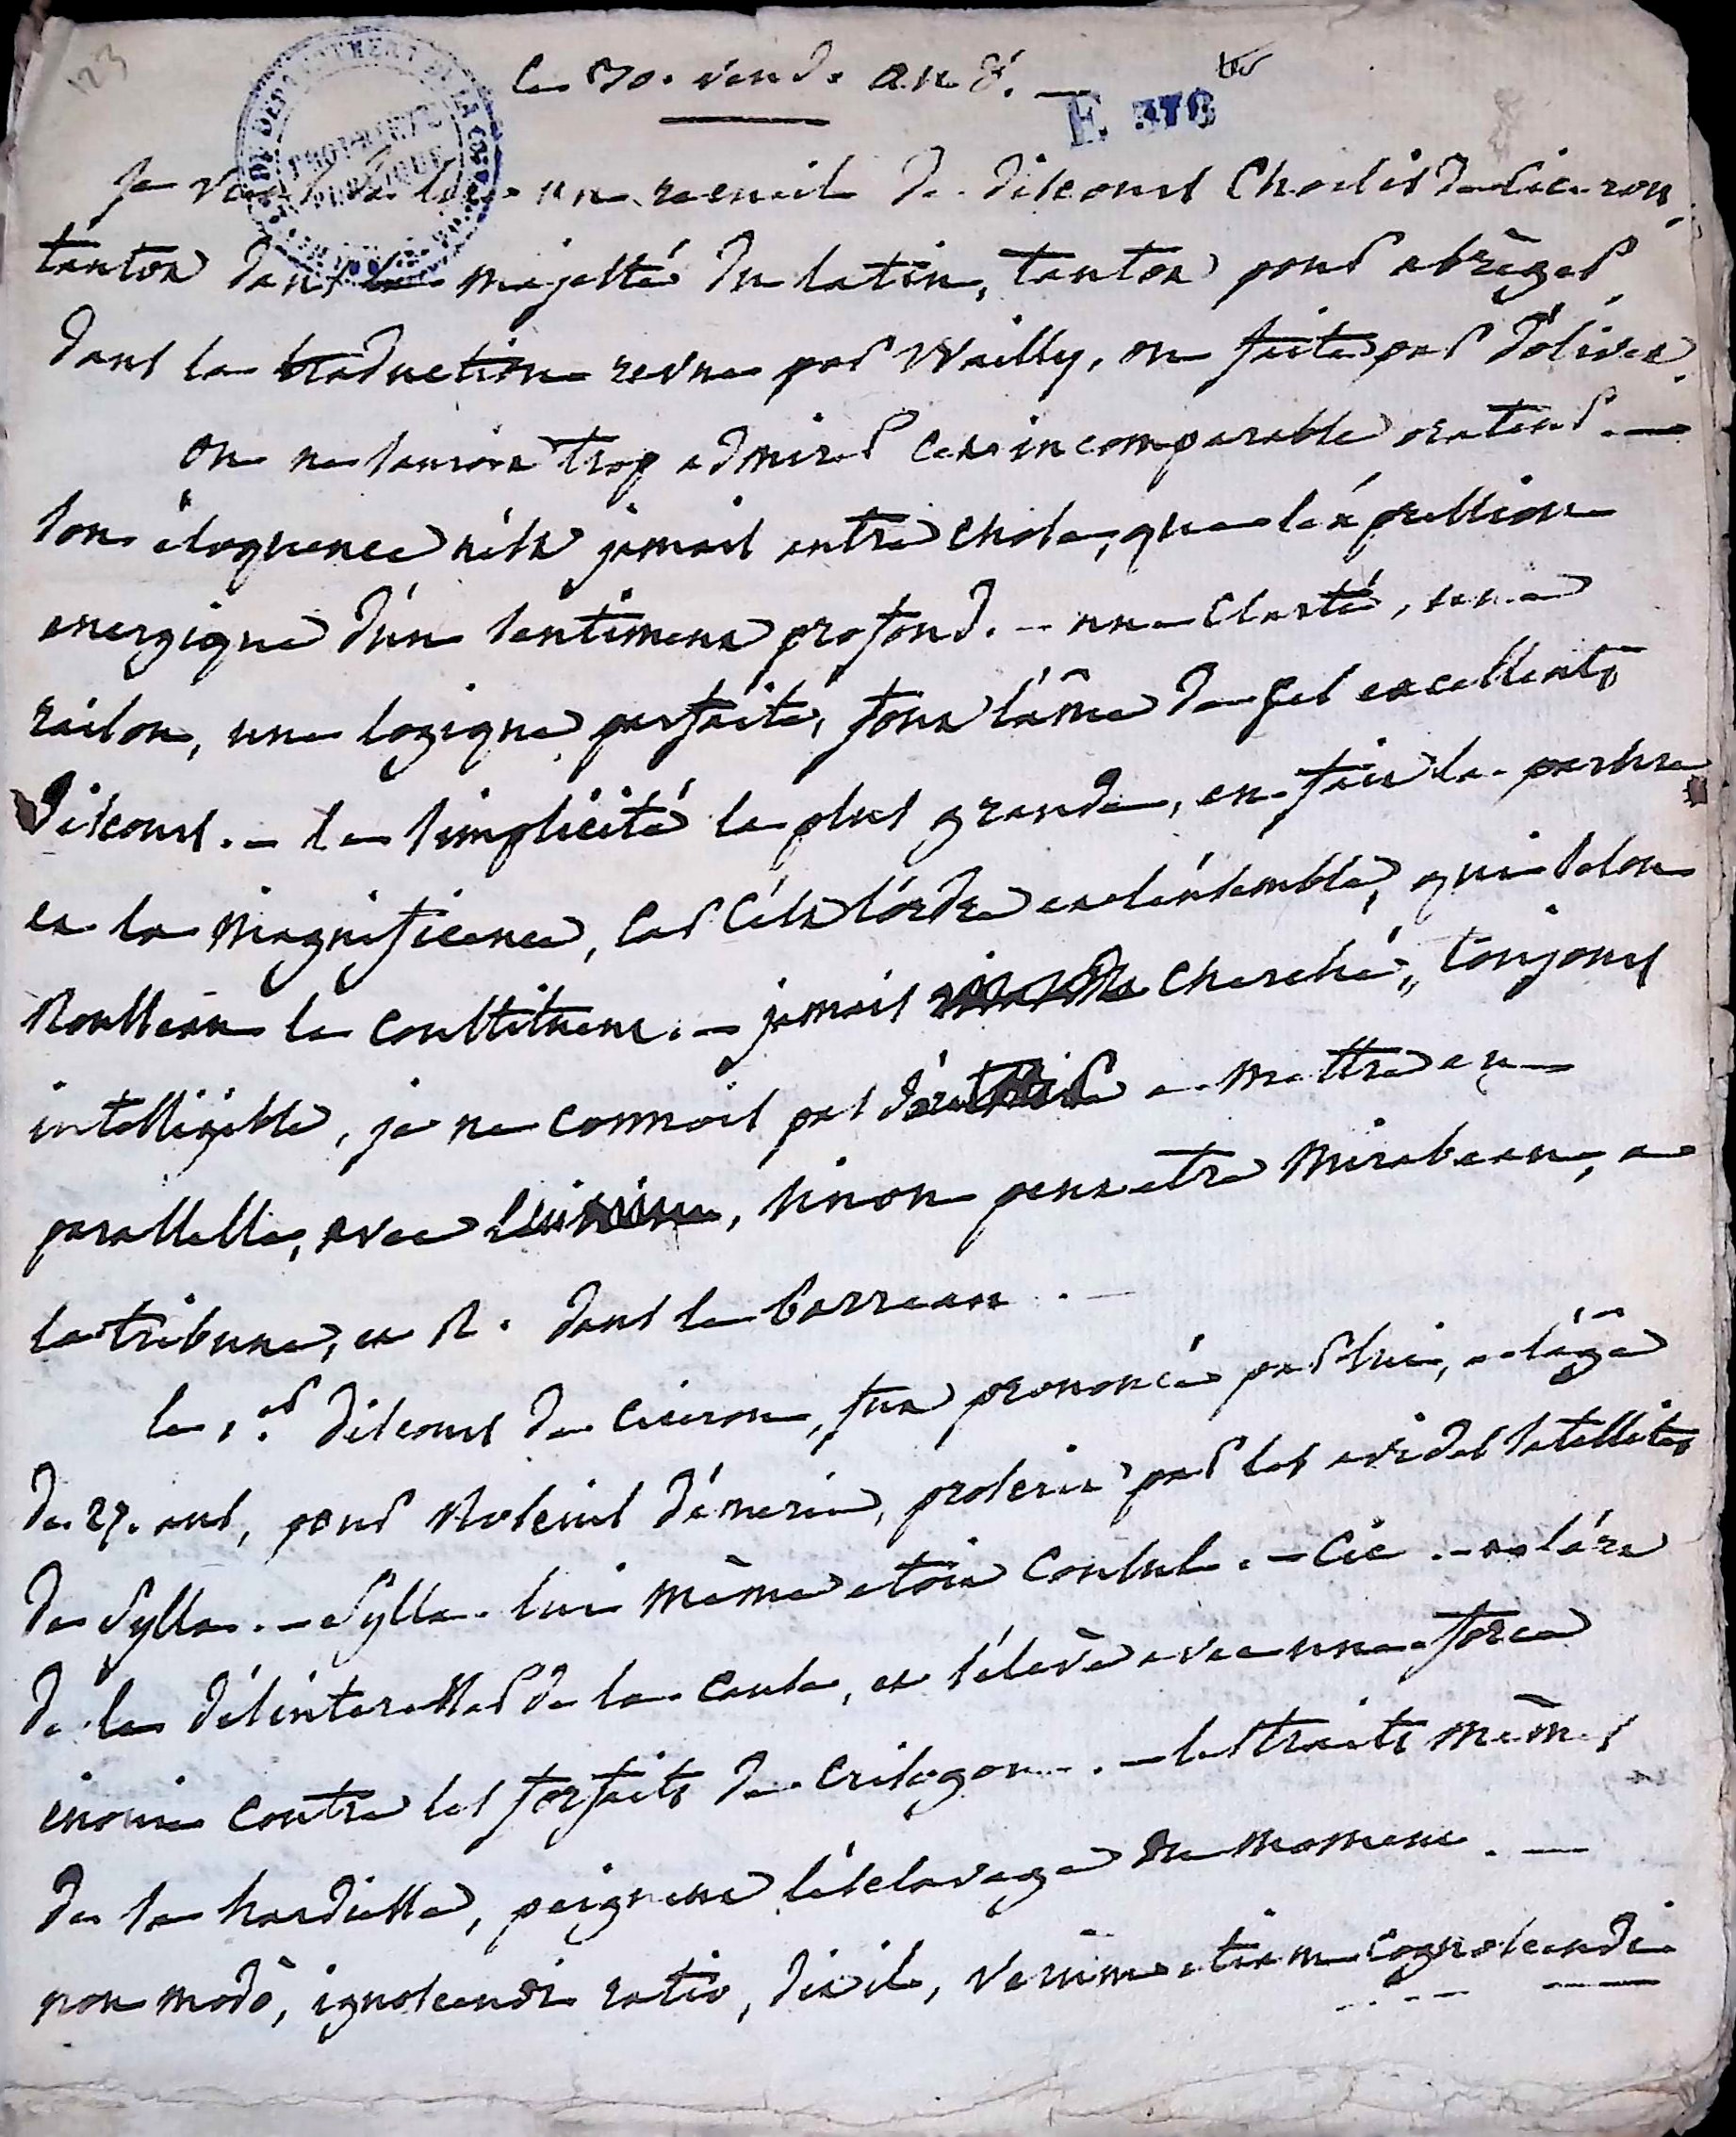 123
le 30. vend. an 8. —
E 378
ter
je viens de lire un recueil de discours choisis de Ciceron,
tantôt dans la majesté du latin, tantôt pour abrèger,
dans la traduction revue par Wailly, ou faite par d'olivet.
on ne sauroit trop admirer cet incomparable orateur. —
son èloquence n'est jamais autre chose, que l'éxpression
energique d'un sentiment profond. — une clarté, une
raison, une logique parfaite, font l'âme de ses excellents
discours. — la simplicité la plus grande, en fait la parure
et la magnificence, car c'est l'ordre et l'ensemble, qui selon
Rousseau la constituent. — jamais cherché, toujours
intelligible, je ne connois pas d' a mettre en
parallelle, avec , sinon peut etre Mirabeau, a
la tribune, et R. dans le barreau. —
le 1.er discours de Ciceron, fut prononcé par lui, a l'âge
de 27. ans, pour Roscius d'Amerie, proscrit par les avides satellites
de Sylla. — Sylla lui même etoit Consul. — Cic. — a l'art
de le désinteresser de la cause, et s'éleve avec une force
inouie contre les forfaits de Crisogon. — les traits mêmes
de sa hardiesse, peignent l'ésclavage du moment. —
non modò, ignoscendi ratio, dit-il, verùm etiam cognoscendi